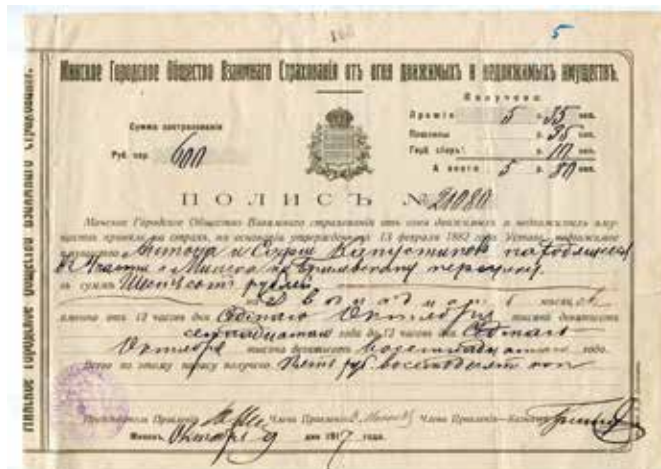 5
Минское Городское Общество Взаимнаго Страхованія отъ огня движимыхъ и недвижимыхъ имуществъ.
Получено:
Преміи 5 р. 35 коп.
Сумма застрахованія
Пошлины р. 35 коп.
Руб. сер. 600
Гор. сборъ р. 10 коп.
А всего 5 р. 80 коп.
ПОЛИСЪ № 21080
Минское Городское Общество Взаимнаго страхованія отъ огня движимыхъ и недвижимыхъ иму-
ществъ приняло на страхъ, на основаніи утвержденнаго 13 февраля 1882 года Устава, недвижимое
Антона и Софіи Капустиновъ находящееся
части г. Минска по переулку
въ суммѣ Шестьсотъ рублей
на Двѣнадцать мѣсяц
именно отъ 12 часовъ дня Седьмаго Октября тысяча девятьсотъ
семнадцатаго года до 12 часовъ дня Седьмаго
Октября тысяча девятьсотъ восемнадцатаго года.
Всего по этому полису получено Пять руб. восемьдесятъ коп
Предсѣдатель Правленія Члены Правленія Члена Правленія—Казначей
Минскъ, Октября 9 дня 1917 года.
Минское Городское Общество Взаимнаго Страхованія.